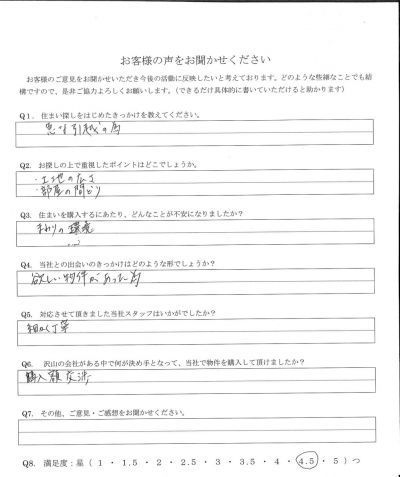 お客様の声をお聞かせください
お客様のご意見をお聞かせいただき今後の活動に反映したいと考えております。どのような些細なことでも結
構ですので、是非ご協力よろしくお願いします。(できるだけ具体的に書いていただけると助かります)
Q1. 住まい探しをはじめたきっかけを教えてください。
急な引越の為
Q2. お探しの上で重視したポイントはどこでしょうか。
・土地の広さ
・部屋の間どり
Q3. 住まいを購入するにあたり、どんなことが不安になりましたか?
まわりの環境
Q4. 当社との出会いのきっかけはどのような形でしょうか?
欲しい物件があった為
Q5. 対応させて頂きました当社スタッフはいかがでしたか?
細かく丁寧
Q6. 沢山の会社がある中で何が決め手となって、当社で物件を購入して頂けましたか?
購入額交渉
Q7. その他、ご意見・ご感想をお聞かせください。
Q8. 満足度:星( 1 ・ 1.5 ・ 2 ・ 2.5 ・ 3 ・ 3.5 ・ 4 ・ 4.5 ・ 5 )つ